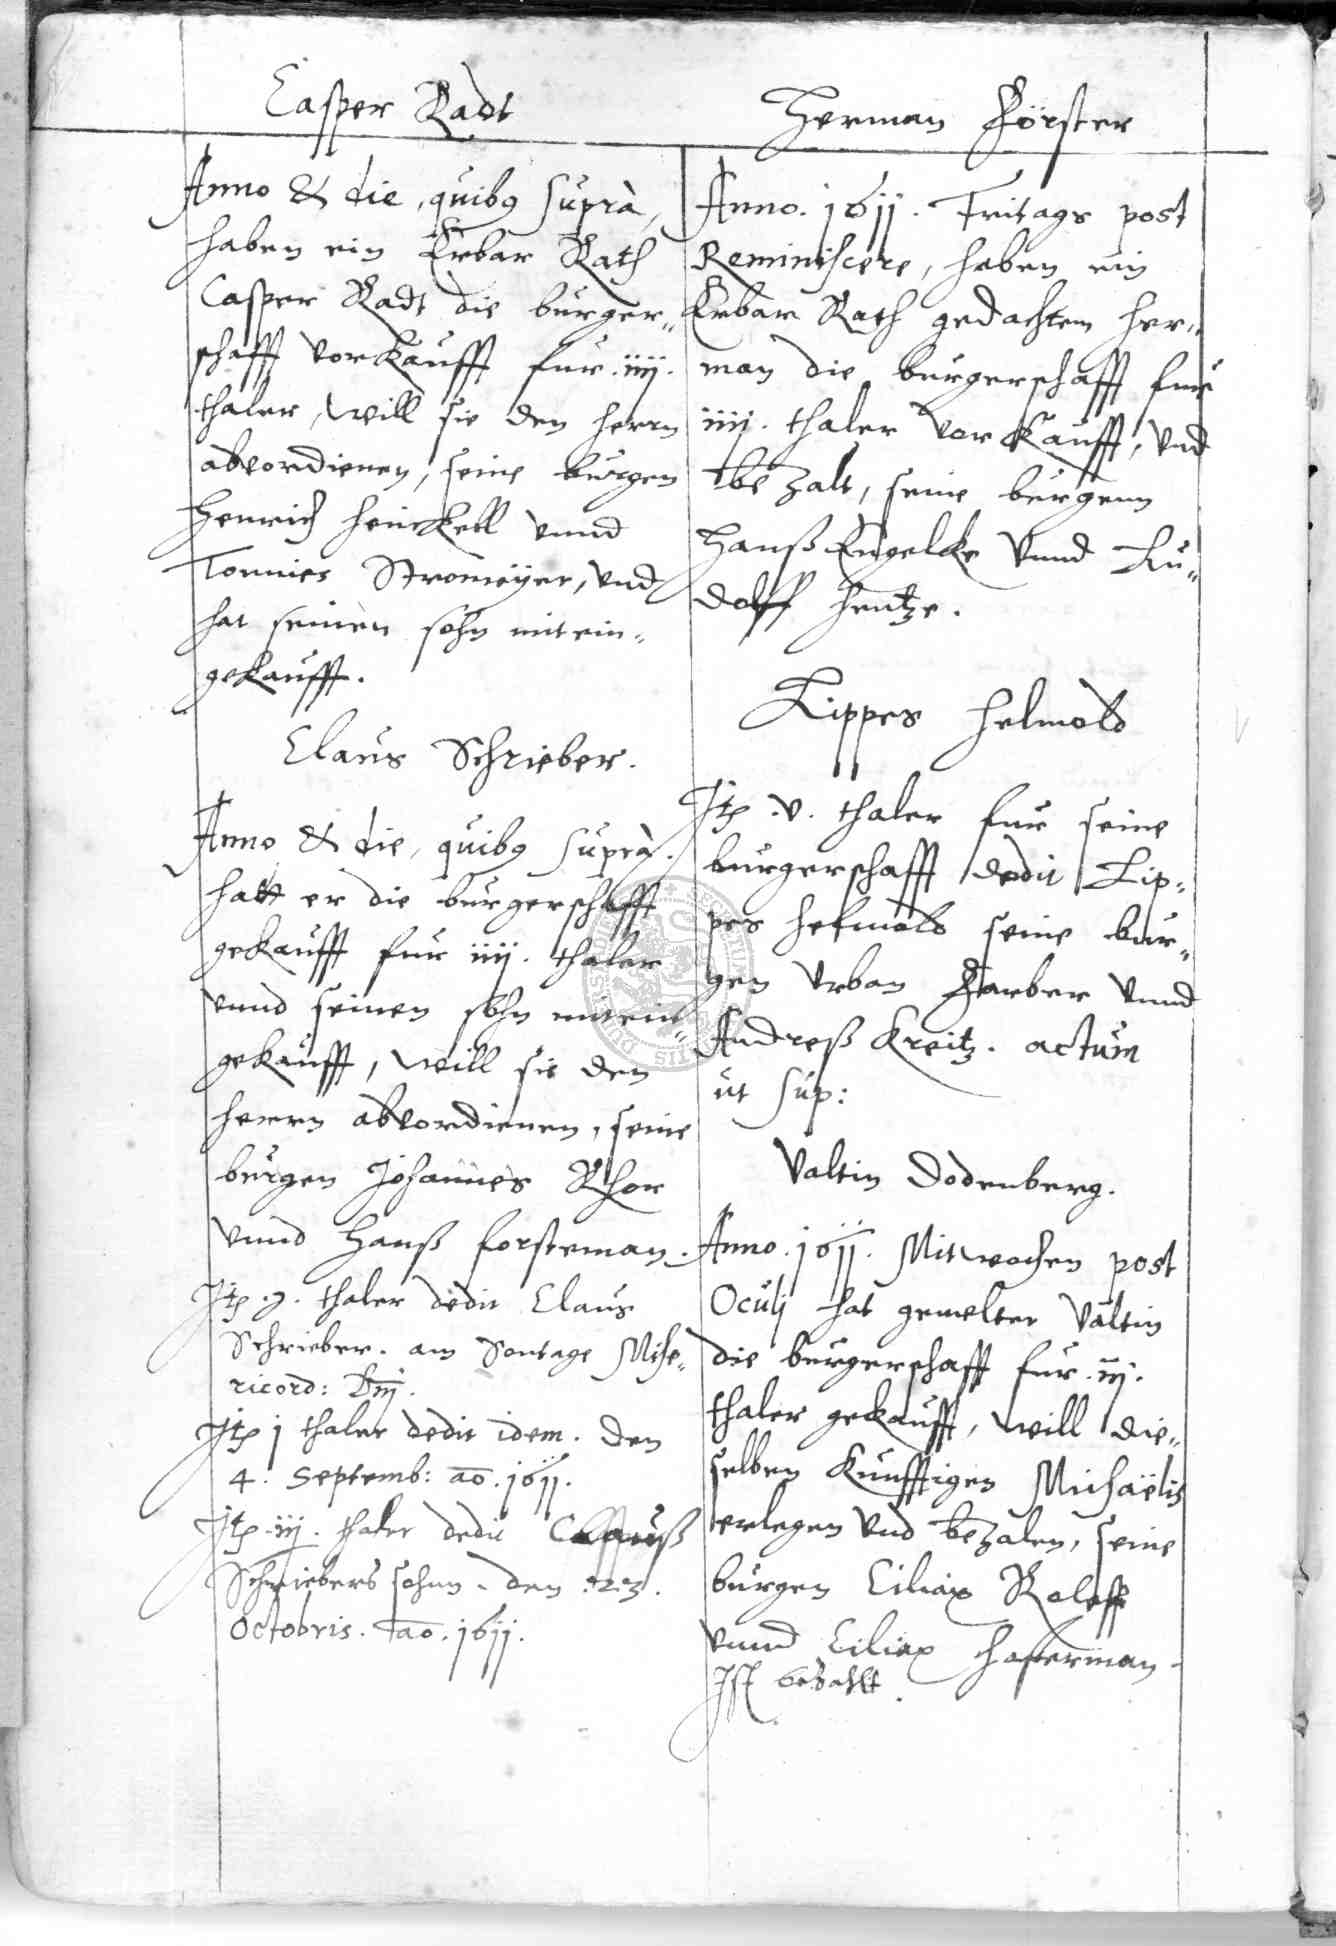 Casper Radt
Anno & die, quibus suprà,
haben ein Erbar Rath
Casper Radt die burger„
schafft vorkaufft fur .iiij.
thaler, will sie den herrn
abvordienen, seine burgen
Henrich Heinckell vnnd
Tonnies Stromeÿer, vnd
hat seinen sohn mit ein„
gekaufft.
Claus Schrieber.
Anno & die, quibus suprà.
hatt er die burgerschafft
gekaufft fur iiij. thaler
vnnd seinen sohn mit ein„
gekaufft, will sie den
herrn abvordienen, seine
burgen Johannes Rhor
vnnd Hanß forsteman.
Itp .j. thaler dedit Claus
Schrieber. am Sontage Mise„
ricord: Dnj.
Itp j thaler dedit idem. den
4. Septemb: ao. 1611.
Itp .iij. thaler dedit Clauß
Schriebers sohnn. den .23.
Octobris. ao. 1611.
Herman Förster
Anno. 1611. Fritags post
Reminiscere, haben ein
Erbar Rath gedachtem Her„
man die burgerschafft fur
iiij. thaler vorkaufft, vnd
bezalt, seine burgenn
Hanß Engelcke vnnd Lu„
dolff Hentze.
Lippes Helmold
Itp .v. thaler fur seine
burgerschafft dedit Lip„
pes Helmold seine bur„
gen Vrban Farber vnnd
Andreß Kreitz. actum
ut sup:
Valtin Dodenberg.
Anno. 1611. Mitwochen post
Oculj hat gemelter Valtin
die burgerschafft fur .iij.
thaler gekaufft, will die„
selben kunfftigen Michaëlis
erlegen vnd bezalen, seine
burgen Ciliax Roleff
vnnd Ciliax Hasterman.
Ist bezahlt.